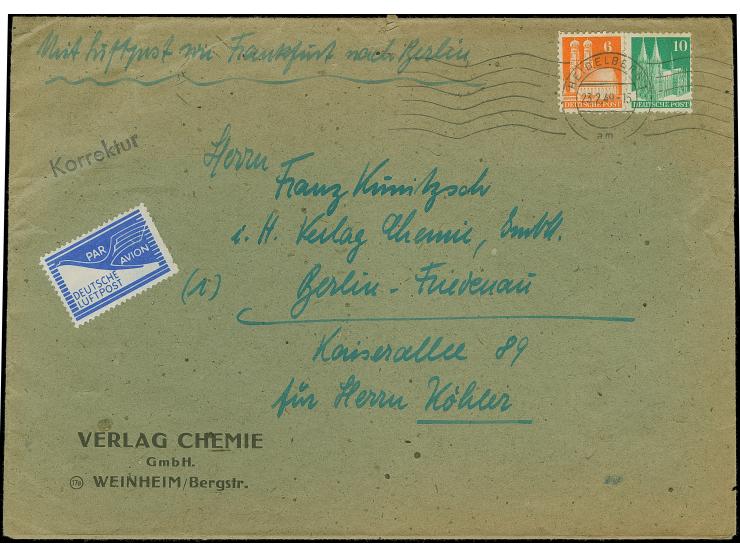 Mit Luftpost via Frankfurt nach Berlin
6
DEUTSCHE POST
10
DEUTSCHE POST
HEIDELBE
23.2.49-15
am
Korrektur
PAR AVION
DEUTSCHE
LUFTPOST
Herrn
Franz Kunitzsch
i. H. Verlag Chemie, GmbH.
(1) Berlin-Friedenau
Kaiserallee 89
für Herrn Köhler
VERLAG CHEMIE
GmbH.
17a WEINHEIM/Bergstr.